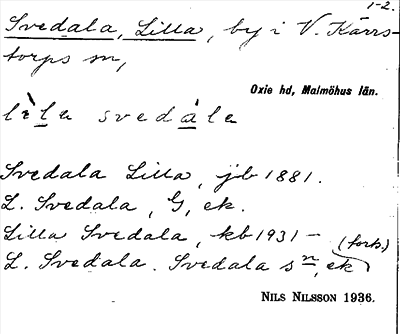 1-2.
Svedala, Lilla, by i V. Kärrs-
torps sn,
Oxie hd, Malmöhus län.
lìla svedála
Svedala Lilla, jb 1881.
L. Svedala, G, ek.
Lilla Svedala, kb 1931 - (fork.)
L. Svedala. Svedala sn, ek
NILS NILSSON 1936.